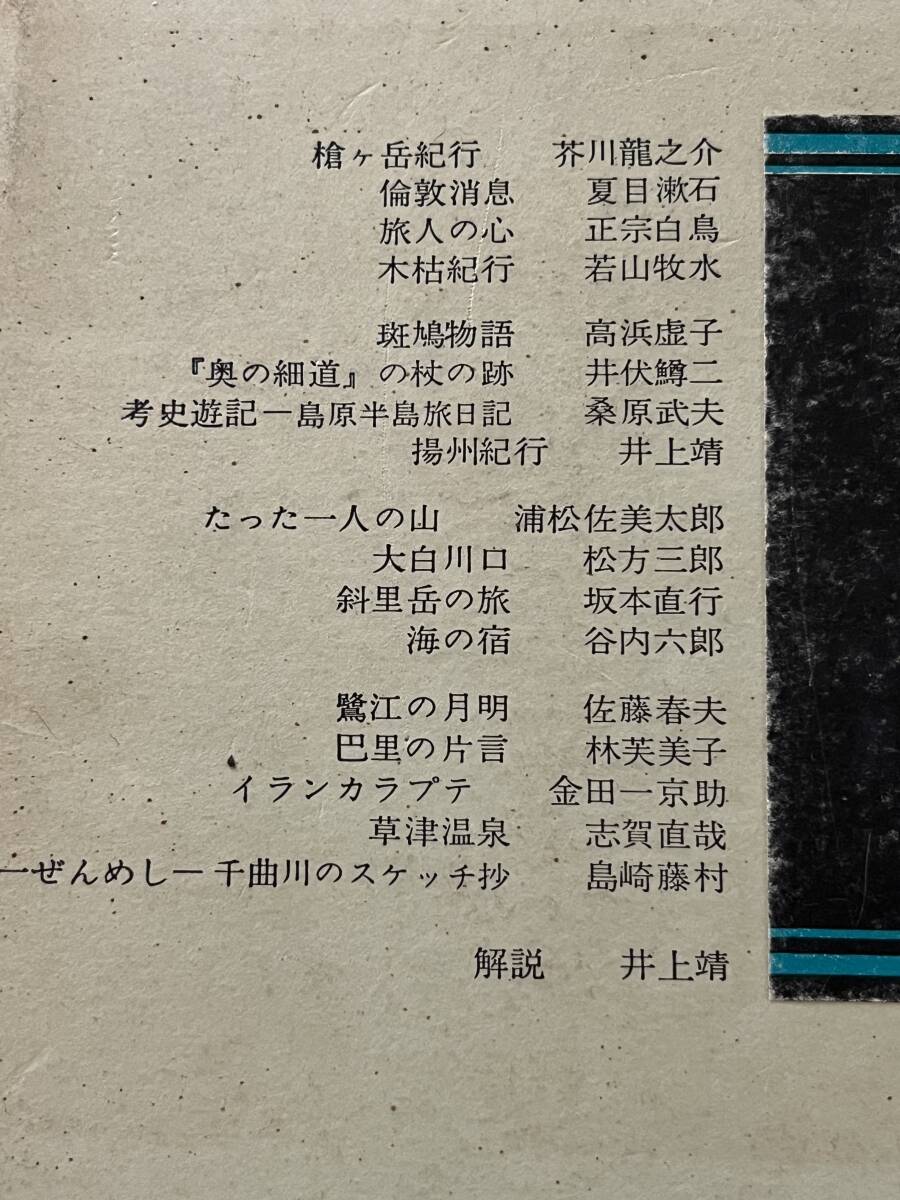 槍ヶ岳紀行　芥川龍之介
倫敦消息　夏目漱石
旅人の心　正宗白鳥
木枯紀行　若山牧水
斑鳩物語　高浜虚子
『奥の細道』の杖の跡　井伏鱒二
考史遊記―島原半島旅日記　桑原武夫
揚州紀行　井上靖
たった一人の山　浦松佐美太郎
大白川口　松方三郎
斜里岳の旅　坂本直行
海の宿　谷内六郎
鷺江の月明　佐藤春夫
巴里の片言　林芙美子
イランカラプテ　金田一京助
草津温泉　志賀直哉
一ぜんめし―千曲川のスケッチ抄　島崎藤村
解説　井上靖